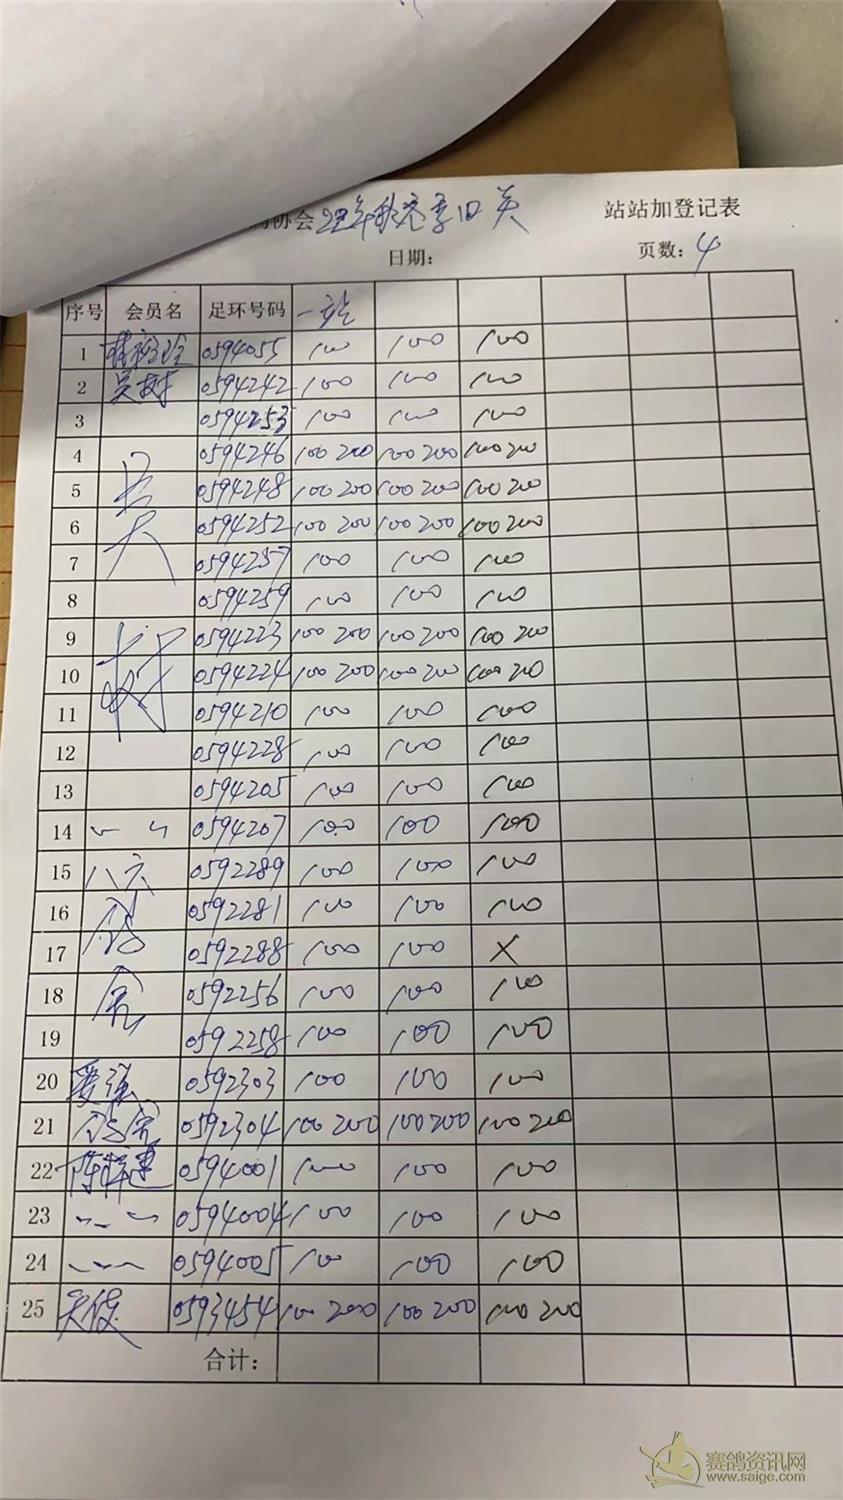 协会 季
站站加登记表
日期：
页数：4
序号 会员名 足环号码 一站
1 0594055 100 100 100
2 吴树 0594242 100 100 100
3 0594253 100 100 100
4 0594246 100 200 100 200 100 200
5 0594248 100 200 100 200 100 200
6 0594252 100 200 100 200 100 200
7 0594257 100 100 100
8 0594259 100 100 100
9 0594223 100 200 100 200 100 200
10 0594224 100 200 100 200 100 200
11 0594210 100 100 100
12 0594228 100 100 100
13 0594205 100 100 100
14 0594207 100 100 100
15 八六 0592289 100 100 100
16 鸽 0592281 100 100 100
17 0592288 100 100 X
18 舍 0592256 100 100 100
19 0592258 100 100 100
20 0592303 100 100 100
21 鸽舍 0592304 100 200 100 200 100 200
22 陈祥建 0594001 100 100 100
23 0594004 100 100 100
24 0594005 100 100 100
25 0593454 100 200 100 200 100 200
合计：
赛鸽资讯网
www.saige.com